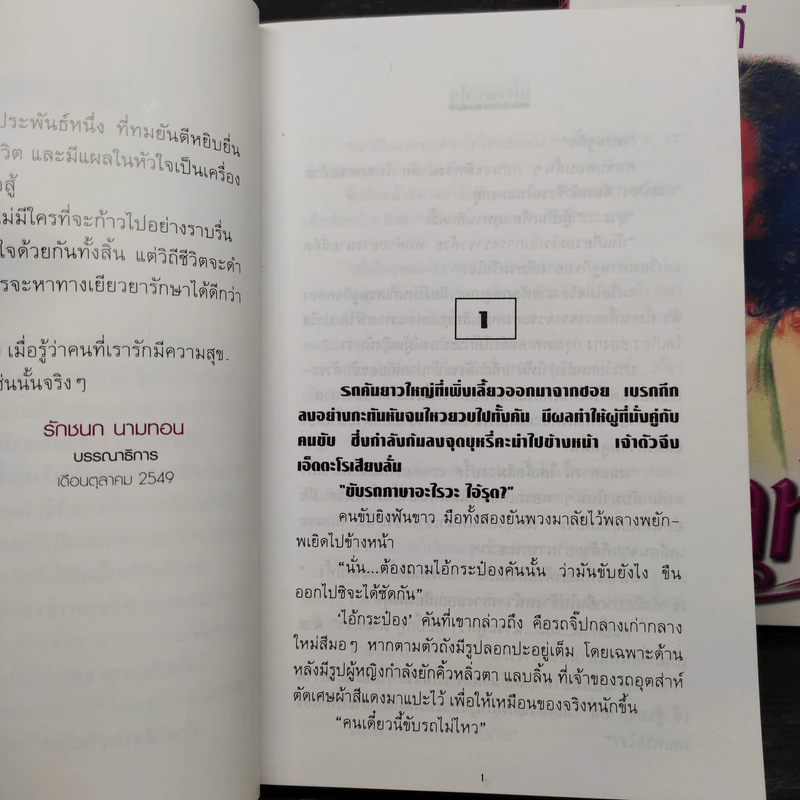 ประพันธ์หนึ่ง ที่ทมยันตีหยิบยื่น
วิต และมีแผลในหัวใจเป็นเครื่อง
สู้
ไม่มีใครที่จะก้าวไปอย่างราบรื่น
ใจด้วยกันทั้งสิ้น แต่วิถีชีวิตจะดำ
รจะหาทางเยียวยารักษาได้ดีกว่า
เมื่อรู้ว่าคนที่เรารักมีความสุข.
ช่นนั้นจริงๆ
รักชนก นามทอน
บรรณาธิการ
เดือนตุลาคม 2549
1
รถคันยาวใหญ่ที่เพิ่งเลี้ยวออกมาจากซอย เบรกกึก
ลงอย่างกะทันหันจนไหวยวบไปทั้งคัน มีผลทำให้ผู้ที่นั่งคู่กับ
คนขับ ซึ่งกำลังก้มลงจุดบุหรี่คะมำไปข้างหน้า เจ้าตัวจึง
เอ็ดตะโรเสียงลั่น
"ขับรถภาษาอะไรวะ ไอ้รุด?"
คนขับยิงฟันขาว มือทั้งสองยันพวงมาลัยไว้พลางพยัก-
พเยิดไปข้างหน้า
“นั่น...ต้องถามไอ้กระป๋องคันนั้น ว่ามันขับยังไง ขืน
ออกไปซิจะได้ซัดกัน”
‘ไอ้กระป๋อง’ คันที่เขากล่าวถึง คือรถจี๊ปกลางเก่ากลาง
ใหม่สีมอๆ หากตามตัวถังมีรูปลอกปะอยู่เต็ม โดยเฉพาะด้าน
หลังมีรูปผู้หญิงกำลังยักคิ้วหลิ่วตา แลบลิ้น ที่เจ้าของรถอุตส่าห์
ตัดเศษผ้าสีแดงมาแปะไว้ เพื่อให้เหมือนของจริงหนักขึ้น
“คนเดี๋ยวนี้ขับรถไม่ไหว”
1